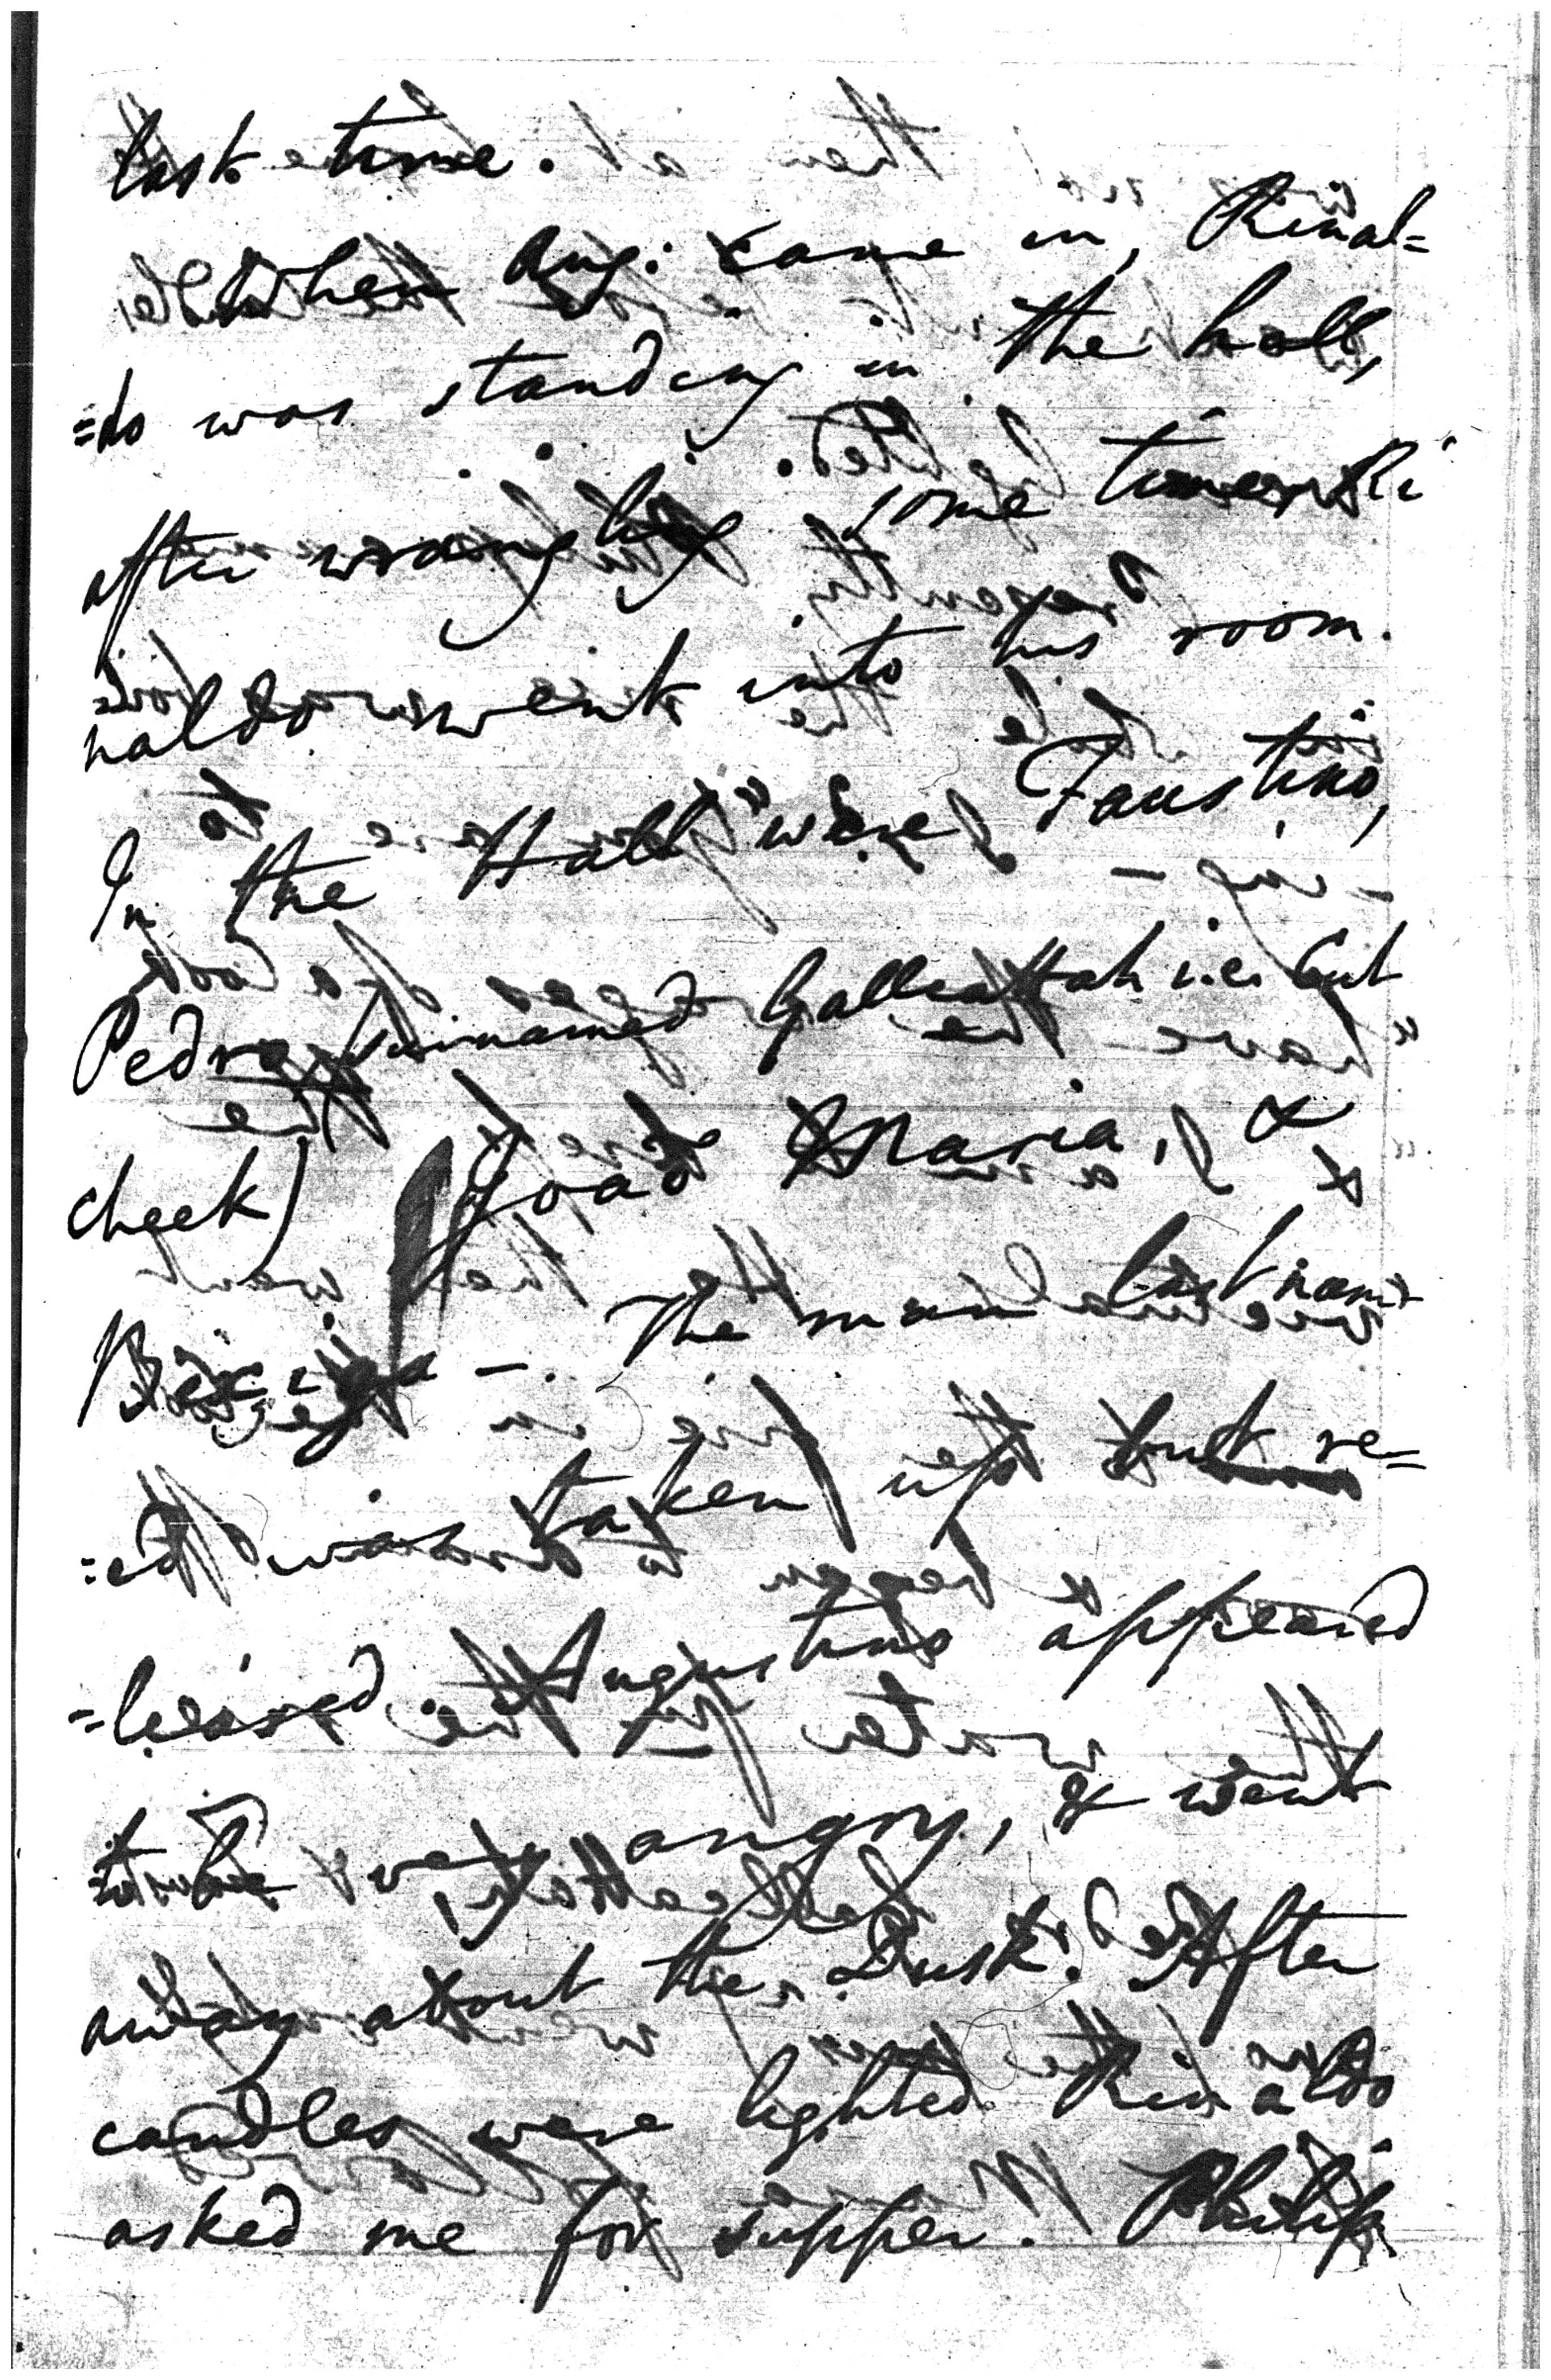 last time.
When Aug: came in, Rinal=
=do was standing in the hall,
after wrangling some time, Ri
naldo went into his room.
In the Hall were Faustino,
Pedro, (surnamed i.e. Cut
cheek) Joao Maria, &
The man last nam-
=ed was taken up but re=
=leased. Augustino appeared
to be very angry, & went
away about the Dusk. After
candles were lighted Rinaldo
asked me for supper. Philip